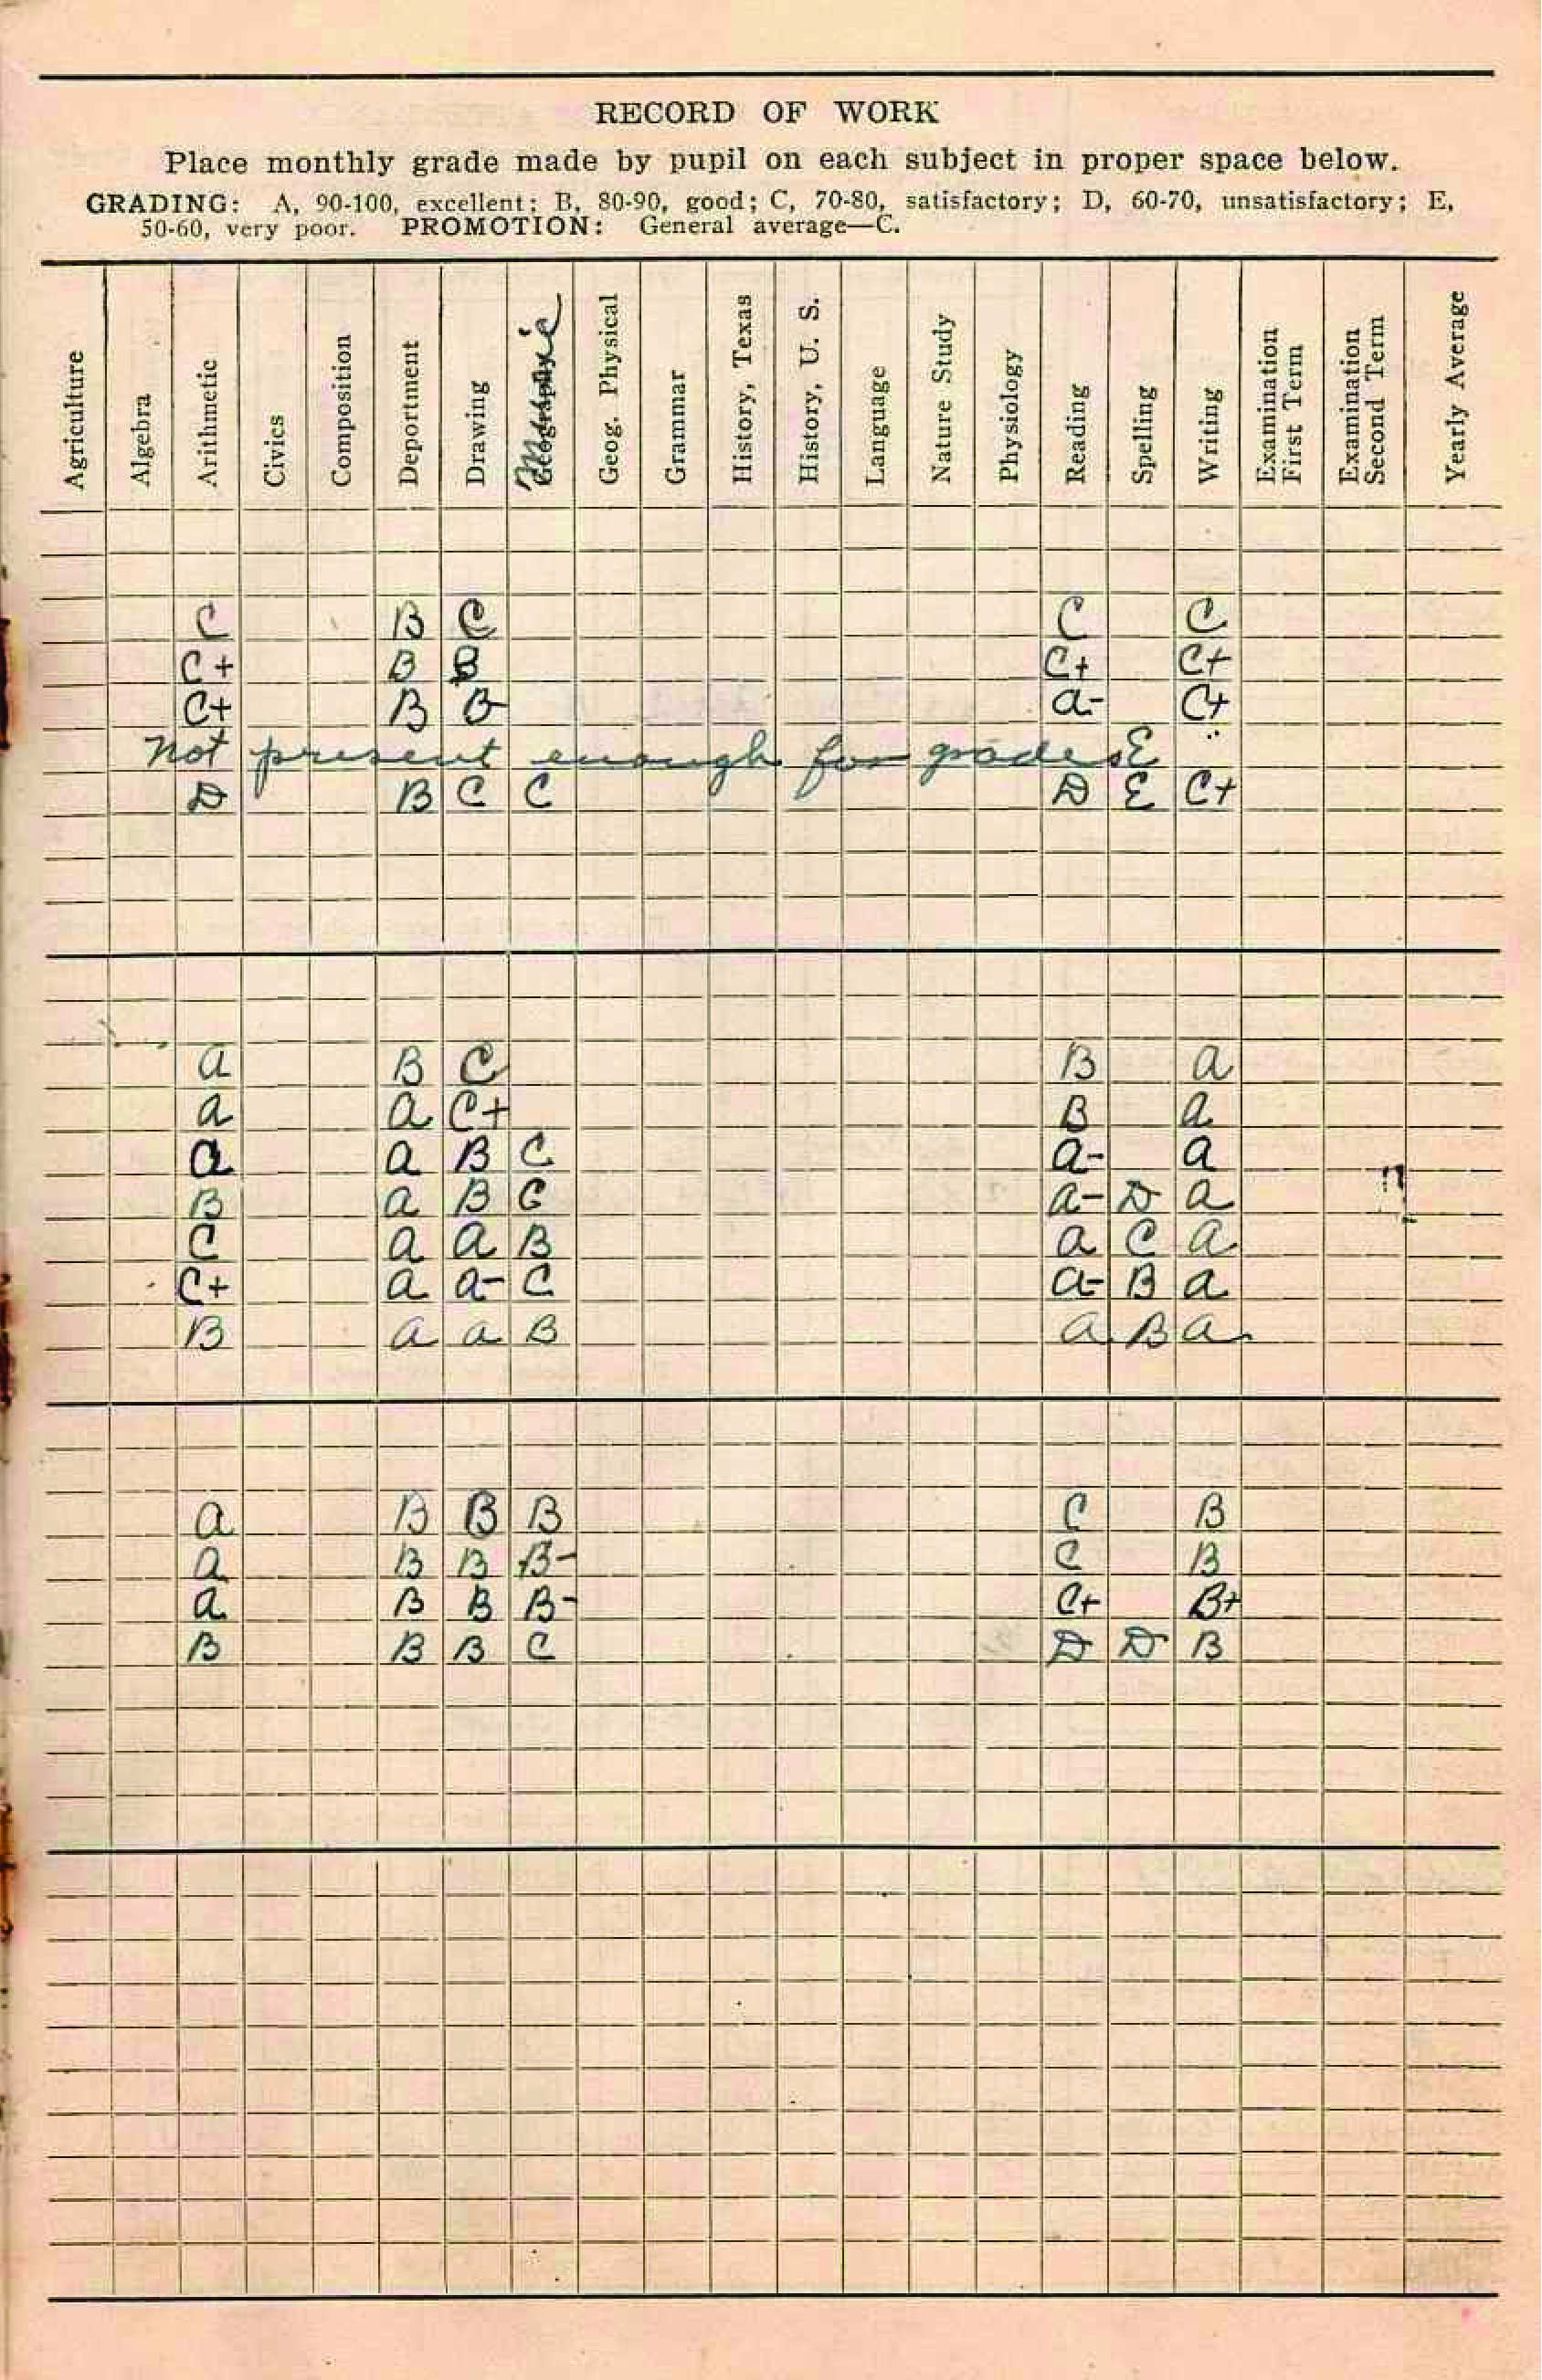 RECORD OF WORK
Place monthly grade made by pupil on each subject in proper space below.
GRADING: A, 90-100, excellent; B, 80-90, good; C, 70-80, satisfactory; D, 60-70, unsatisfactory; E,
50-60, very poor. PROMOTION: General average—C.
Agriculture
Algebra
Arithmetic
Civics
Composition
Deportment
Drawing
Music
Geog. Physical
Grammar
History, Texas
History, U. S.
Language
Nature Study
Physiology
Reading
Spelling
Writing
Examination
First Term
Examination
Second Term
Yearly Average
C B C C C
C+ B B C+ C+
C+ B B a- C+
not present enough for grades E
D B C C D E C+
a B C B a
a a C+ B a
a a B C a- a
B a B C a- D a
C a a B a C a
C+ a a- C a- B a
B a a B a B a
a B B B C B
a B B B- C B
a B B B- C+ B+
B B B C D D B